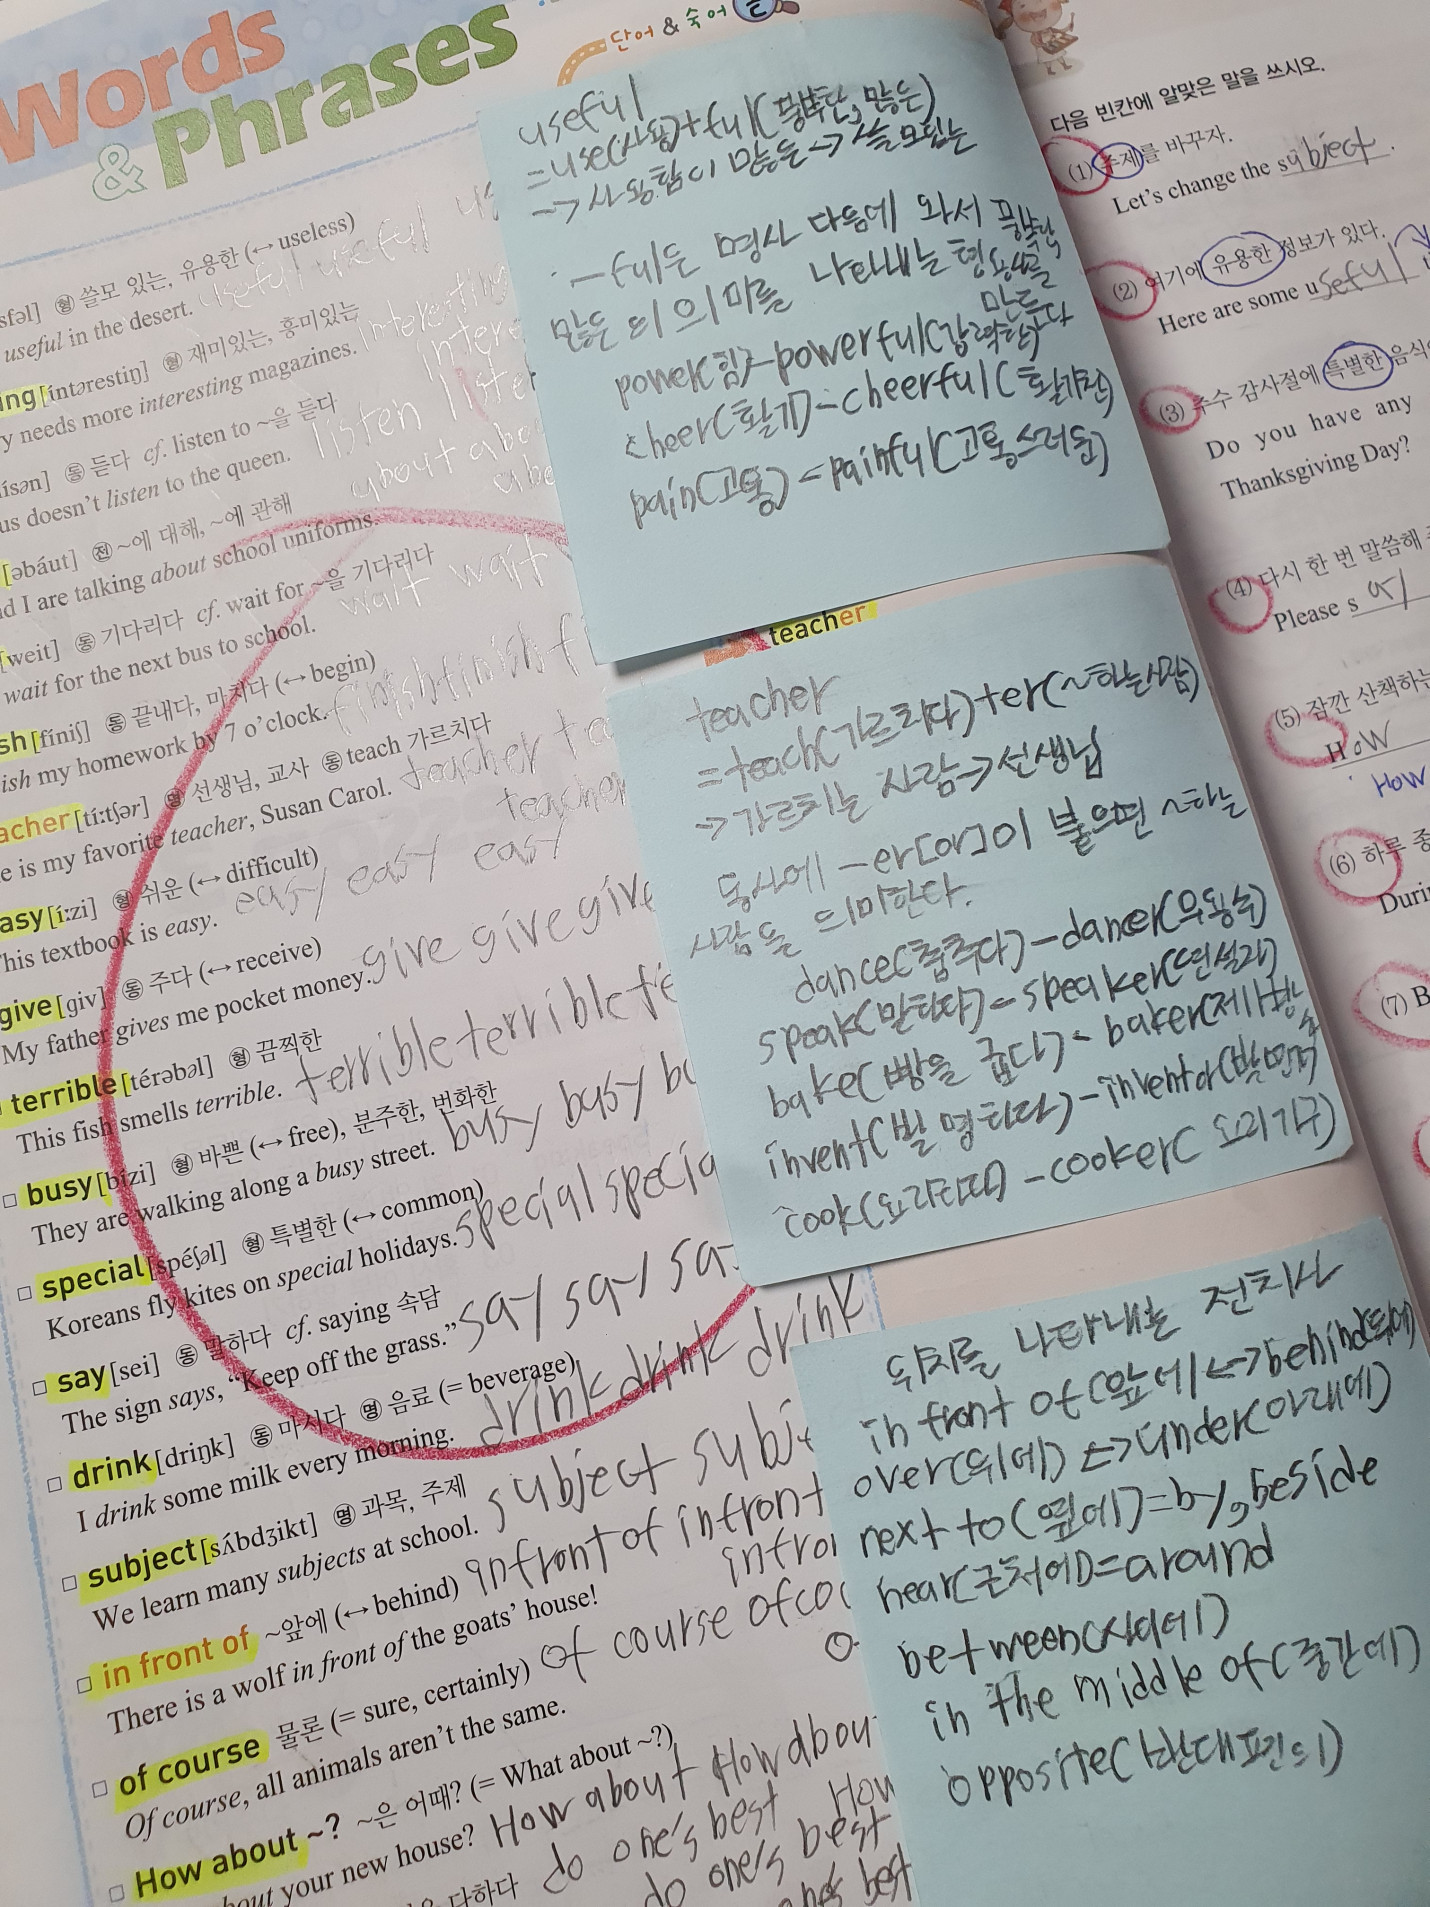 Words
& Phrases
단어 & 숙어
sfəl] 형 쓸모 있는, 유용한 (↔ useless)
useful in the desert. useful useful
ing [íntərestiŋ] 형 재미있는, 흥미있는
y needs more interesting magazines. interesting
listen
ísən] 동 듣다 cf. listen to ~을 듣다
us doesn't listen to the queen. listen
[əbáut] 전 ~에 대해, ~에 관해
d I are talking about school uniforms.
about
[weit] 동 기다리다 cf. wait for ~을 기다리다
wait for the next bus to school. wait wait
sh [fíniʃ] 동 끝내다, 마치다 (↔ begin)
ish my homework by 7 o'clock. finish finish fi
acher [tíːtʃər] 명 선생님, 교사 동 teach 가르치다
e is my favorite teacher, Susan Carol. teacher tea
teacher
asy [íːzi] 형 쉬운 (↔ difficult)
his textbook is easy. easy easy easy
give [giv] 동 주다 (↔ receive)
My father gives me pocket money. give give give
terrible [térəbəl] 형 끔찍한
This fish smells terrible. terrible terrible te
□ busy [bízi] 형 바쁜 (↔ free), 분주한, 번화한
They are walking along a busy street. busy busy bu
□ special [spéʃəl] 형 특별한 (↔ common)
Koreans fly kites on special holidays. special specia
□ say [sei] 동 말하다 cf. saying 속담
The sign says, “Keep off the grass.” say say sa
□ drink [driŋk] 동 마시다 명 음료 (= beverage)
I drink some milk every morning. drink drink drink
□ subject [sʌ́bdʒikt] 명 과목, 주제
We learn many subjects at school. subject subje
□ in front of ~앞에 (↔ behind) in front of in front
There is a wolf in front of the goats' house! in fron
□ of course 물론 (= sure, certainly) of course of cou
Of course, all animals aren't the same.
□ How about ~? ~은 어때? (= What about ~?)
bout your new house? How about How abou
How
다하다 do one's best
do one's best
one's best
useful
=use(사용)+ful(풍부한, 많은)
→사용함이 많은→쓸모있는
-ful은 명사 다음에 와서 풍부한,
많은 의 의미를 나타내는 형용사를
만든다
power(힘)-powerful(강력한)
cheer(활기)-cheerful(활기찬)
pain(고통)-painful(고통스러운)
teacher
teacher
=teach(가르치다)+er(~하는사람)
→가르치는 사람→선생님
동사에 -er[or]이 붙으면 ~하는
사람을 의미한다.
dance(춤추다)-dancer(무용수)
speak(말하다)-speaker(연설가)
bake(빵을 굽다)-baker(제빵사)
invent(발명하다)-inventor(발명가)
cook(요리하다)-cooker(요리기구)
위치를 나타내는 전치사
in front of(앞에)↔behind(뒤에)
over(위에)↔under(아래에)
next to(옆에)=by, beside
near(근처에)=around
between(사이에)
in the middle of(중간에)
opposite(반대편의)
다음 빈칸에 알맞은 말을 쓰시오.
(1) 주제를 바꾸자.
Let's change the subject.
(2) 여기에 유용한 정보가 있다.
Here are some useful
(3) 추수 감사절에 특별한 음식
Do you have any
Thanksgiving Day?
(4) 다시 한 번 말씀해
Please say
(5) 잠깐 산책하는
How
How
(6) 하루 종
Duri
(7) B